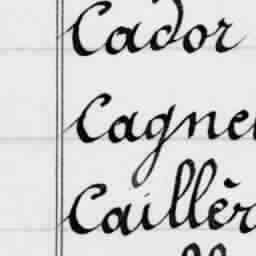 Cador
Cagne
Caillèr